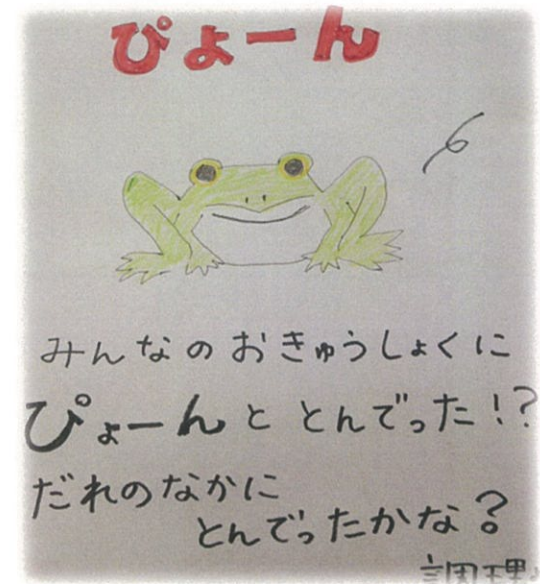 ぴょーん
みんなのおきゅうしょくに
ぴょーんと とんでった!?
だれのなかに
とんでったかな?
調理